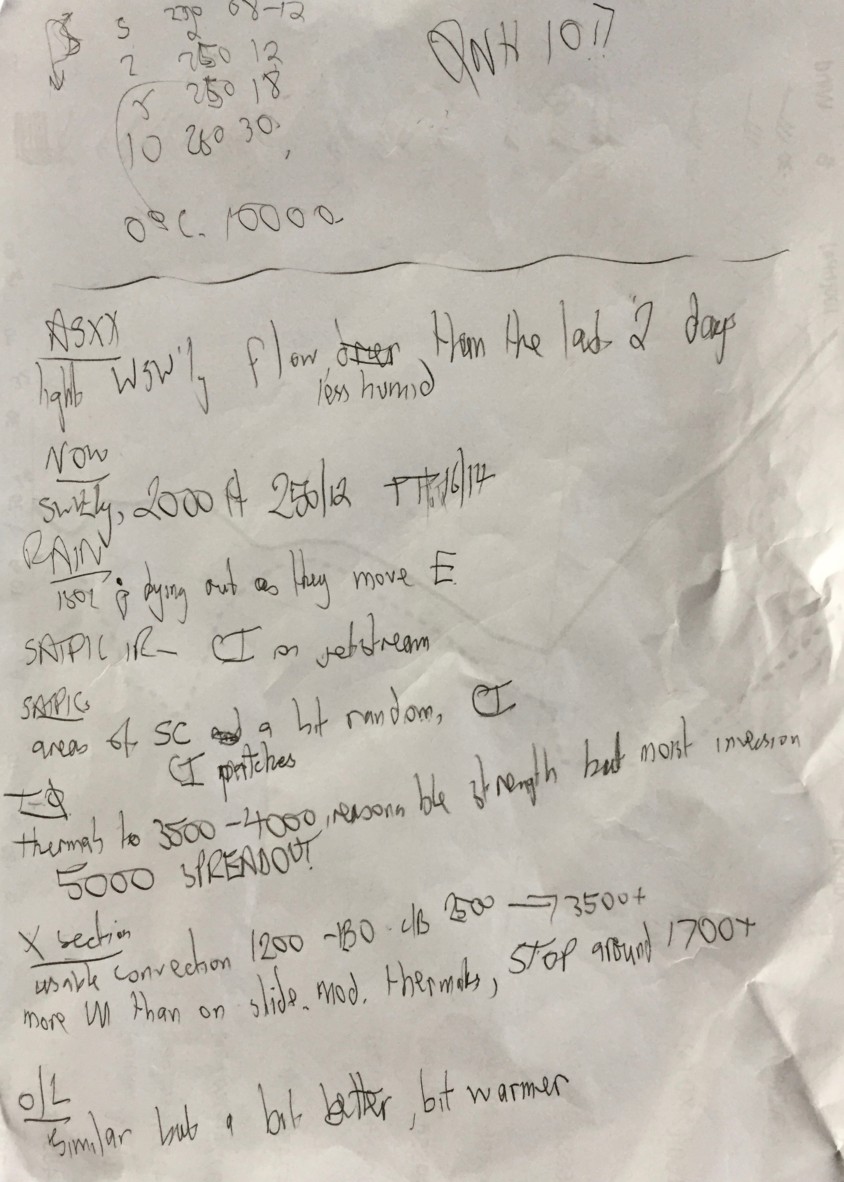 S 250 08-12
2 250 12
5 250 18
10 260 30
QNH 1017
0°C. 10000
ASXX
light WSW'ly flow, than the last 2 days
less humid
NOW
SW'ly, 2000 ft 250/12 16/14
RAIN
dying out as they move E
SATPIC IR - CI on jetstream
SATPIC
areas of SC a bit random, CI
CI patches
T-Φ
thermals to 3500-4000, reasonable strength but moist inversion
5000 SPREADOUT
X section
usable convection 1200 - c/B 2500 ⟹ 3500+
more than on slide. Mod. thermals, STOP around 1700+
O/L
Similar but a bit better, bit warmer